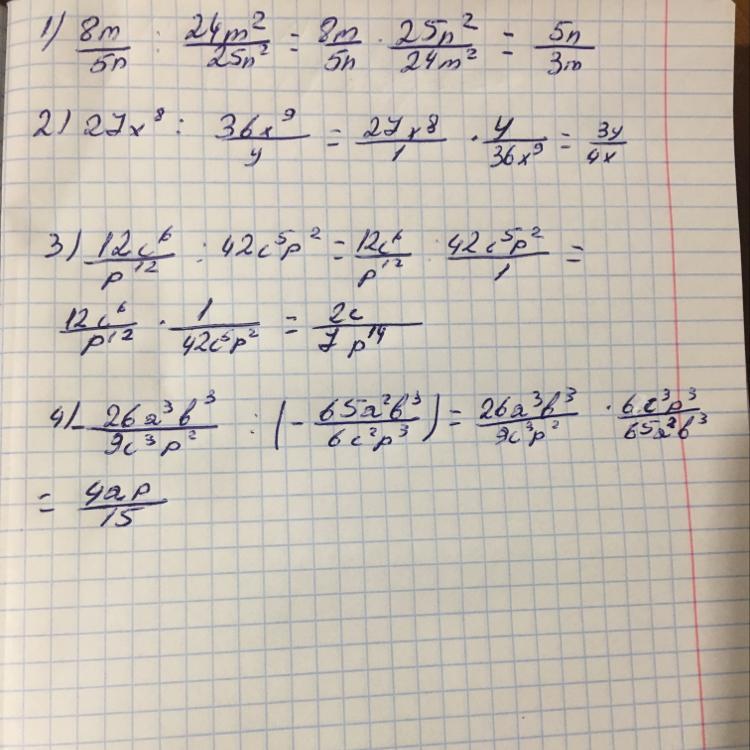 1) 8m/5n : 24m²/25n² = 8m/5n · 25n²/24m² = 5n/3m
2) 27x⁸ : 36x⁹/y = 27x⁸/1 · y/36x⁹ = 3y/4x
3) 12c⁶/p¹² : 42c⁵p² = 12c⁶/p¹² : 42c⁵p²/1 =
12c⁶/p¹² · 1/42c⁵p² = 2c/7p¹⁴
4) -26a³b³/9c³p² : (-65a²b³/6c²p³) = 26a³b³/9c³p² · 6c³p³/65a²b³
= 4ap/15